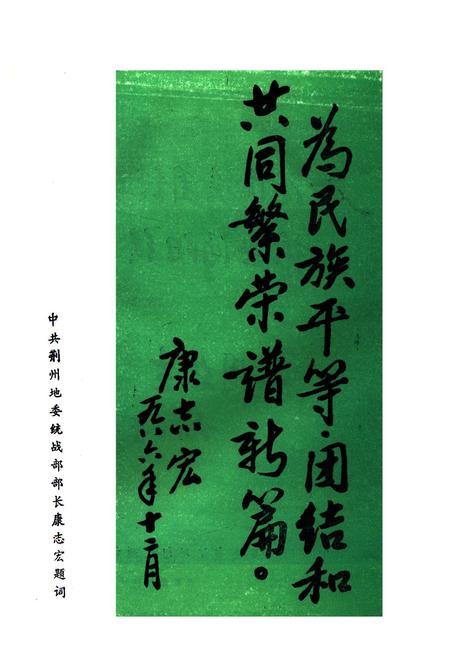 为民族平等、团结和
共同繁荣谱新篇。
康志宏
一九八六年十二月
中共荆州地委统战部部长康志宏题词